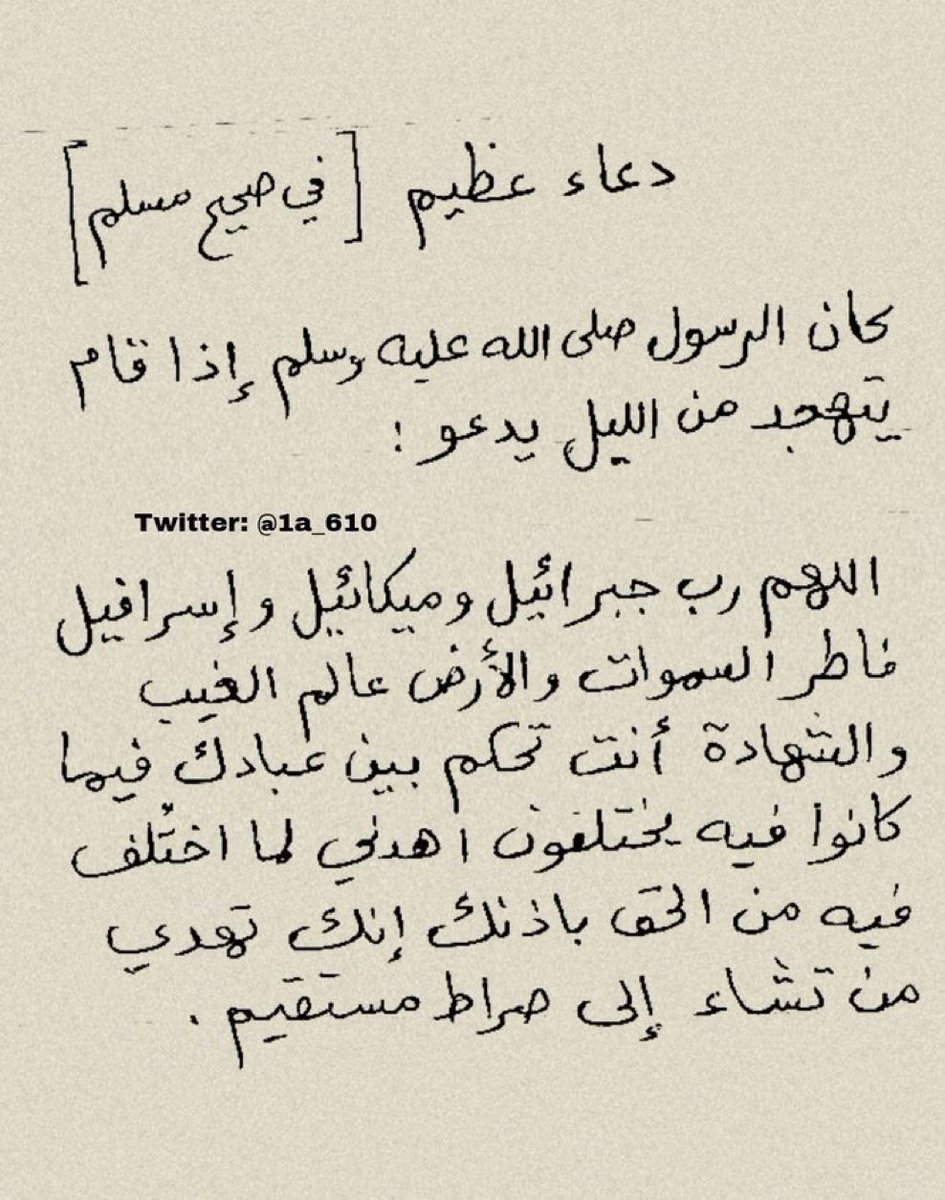 دعاء عظيم [في صحيح مسلم]
كان الرسول صلى الله عليه وسلم إذا قام
يتهجد من الليل يدعو :
Twitter: @1a_610
اللهم رب جبرائيل وميكائيل وإسرافيل
فاطر السموات والأرض عالم الغيب
والشهادة أنت تحكم بين عبادك فيما
كانوا فيه يختلفون اهدني لما اختُلف
فيه من الحق باذنك إنك تهدي
من تشاء إلى صراط مستقيم .